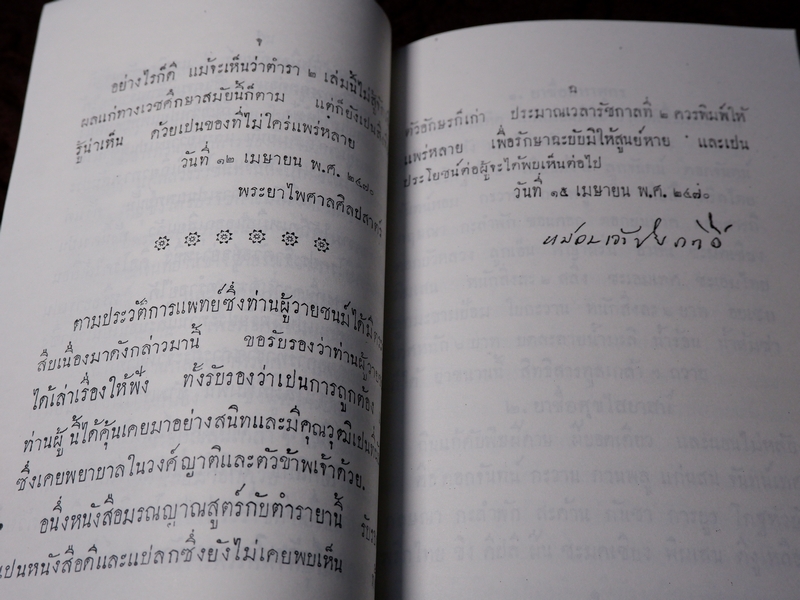 ช
อย่างไรก็ดี แม้จะเห็นว่าตำรา ๒ เล่มนี้ไม่สู้
ผลแก่ทางเวชศึกษาสมัยนี้ก็ตาม แต่ก็ยังเปน
รู้น่าเห็น ด้วยเปนของที่ไม่ใคร่แพร่หลาย
วันที่ ๑๒ เมษายน พ.ศ. ๒๔๗๐
พระยาไพศาลศิลปสาตร์
ตามประวัติการแพทย์ซึ่งท่านผู้วายชนม์ได้มี
สืบเนื่องมาดังกล่าวมานี้ ขอรับรองว่าท่านผู้วาย
ได้เล่าเรื่องให้ฟัง ทั้งรับรองว่าเปนการถูกต้อง
ท่านผู้นี้ได้คุ้นเคยมาอย่างสนิทและมีคุณวุฒิเปนที่
ซึ่งเคยพยาบาลในวงศ์ญาติและตัวข้าพเจ้าด้วย.
อนึ่งหนังสือมรณญาณสูตร์กับตำรายานี้
เปนหนังสือดีและแปลกซึ่งยังไม่เคยพบเห็น
ฌ
ตัวอักษรก็เก่า ประมาณเวลารัชกาลที่ ๒ ควรพิมพ์ให้
แพร่หลาย เพื่อรักษาฉะบับมิให้สูญหาย และเปน
ประโยชน์ต่อผู้จะได้พบเห็นต่อไป
วันที่ ๑๕ เมษายน พ.ศ. ๒๔๗๐
หม่อมเจ้า